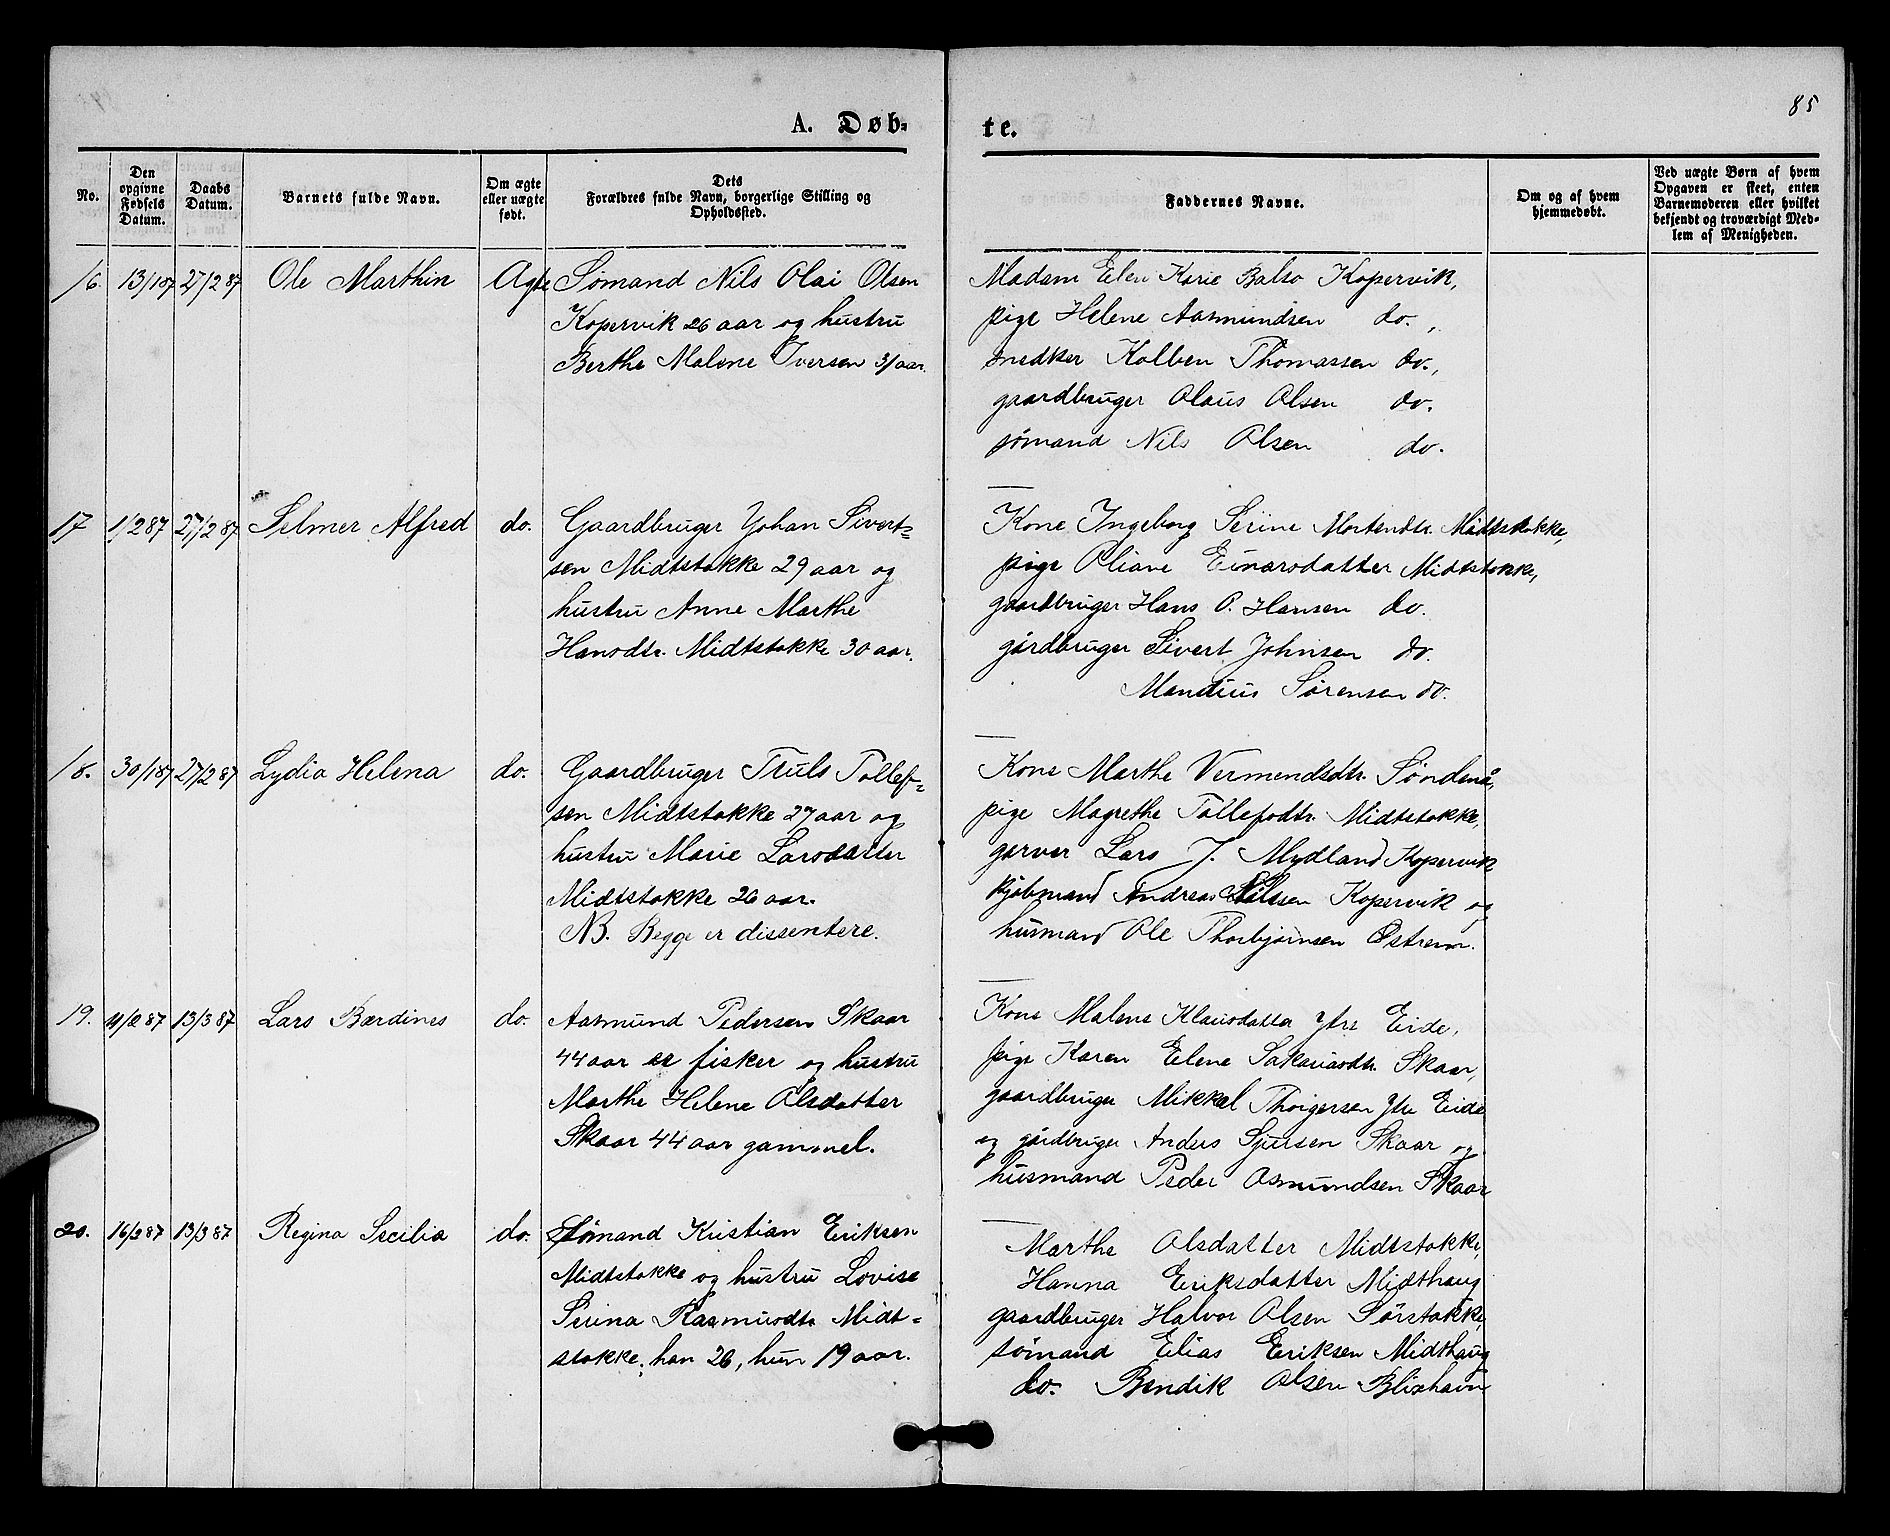 85
A. Døb-
te.
No.
Den opgivne Fødsels Datum.
Daabs Datum.
Barnets fulde Navn.
Om ægte eller uægte født.
Dets Forældres fulde Navn, borgerlige Stilling og Opholdssted.
Faddernes Navne.
Om og af hvem hjemmedøbt.
Ved uægte Børn af hvem Opgaven er skeet, enten Barnemoderen eller hvilket bekjendt og troværdigt Medlem af Menigheden.
16. 13/1 87 27/2 87 Ole Marthin Ægte Sømand Nils Olai Olsen
Kopervik 26 aar og hustru
Berthe Malene Iversen 31 aar.
Madam Elen Karie Balso Kopervik,
pige Helene Aasmundsen do.,
snedker Kolben Thomassen do.,
gaardbruger Olaus Olsen do.
sømand Nils Olsen do.
17 1/2 87 27/2 87 Selmer Alfred do. Gaardbruger Johan Sivert=
sen Midtstokke 29 aar og
hustru Anne Marthe
Hansdtr. Midtstokke 30 aar.
Kone Ingeborg Serine Mortensdtr. Midtstokke,
pige Oliane Einarsdatter Midtstokke,
gaardbruger Hans O. Hansen do.
gårdbruger Sivert Johnsen do.
Mandius Sørensen do.
18. 30/1 87 27/2 87 Lydia Helena do. Gaardbruger Truls Tollef=
sen Midtstokke 27 aar og
hustru Marie Larsdatter
Midtstokke 26 aar.
NB. Begge er dissentere.
Kone Marthe Vermundsdtr. Søndenå,
pige Magrethe Tollefsdtr. Midtstokke,
garver Lars J. Mydland Kopervik
kjøbmand Andreas Kopervik og
husmand Ole Thorbjørnsen Østrem.
19. 4/2 87 13/3 87 Lars Bærdines do. Aasmund Pedersen Skaar
44 aar er fisker og hustru
Marthe Helene Olsdatter
Skaar 44 aar gammel.
Kone Malene Klausdatter Ytre Eide,
pige Karen Elene Sakariasdtr. Skaar,
gaardbruger Mikkel Thorgersen Ytre Eide
og gårdbruger Anders Sjursen Skaar og
husmand Peder Osmundsen Skaar
20. 16/2 87 13/3 87 Regina Secilia do. Sømand Kristian Eriksen
Midtstokke og hustru Lovise
Serina Rasmusdtr. Midt=
stokke, han 26, hun 19 aar.
Marthe Olsdatter Midtstokke,
Hanna Eriksdatter Midthaug
gaardbruger Halvor Olsen Sørstokke,
sømand Elias Eriksen Midthaug
do. Bendik Olsen Blixhavn